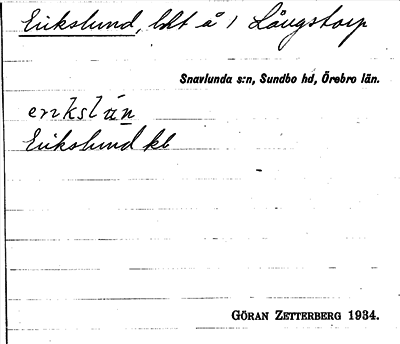 Erikslund, lht å 1 Långstorp
Snavlunda s:n, Sundbo hd, Örebro län.
erikslún
Erikslund kb
GÖRAN ZETTERBERG 1934.